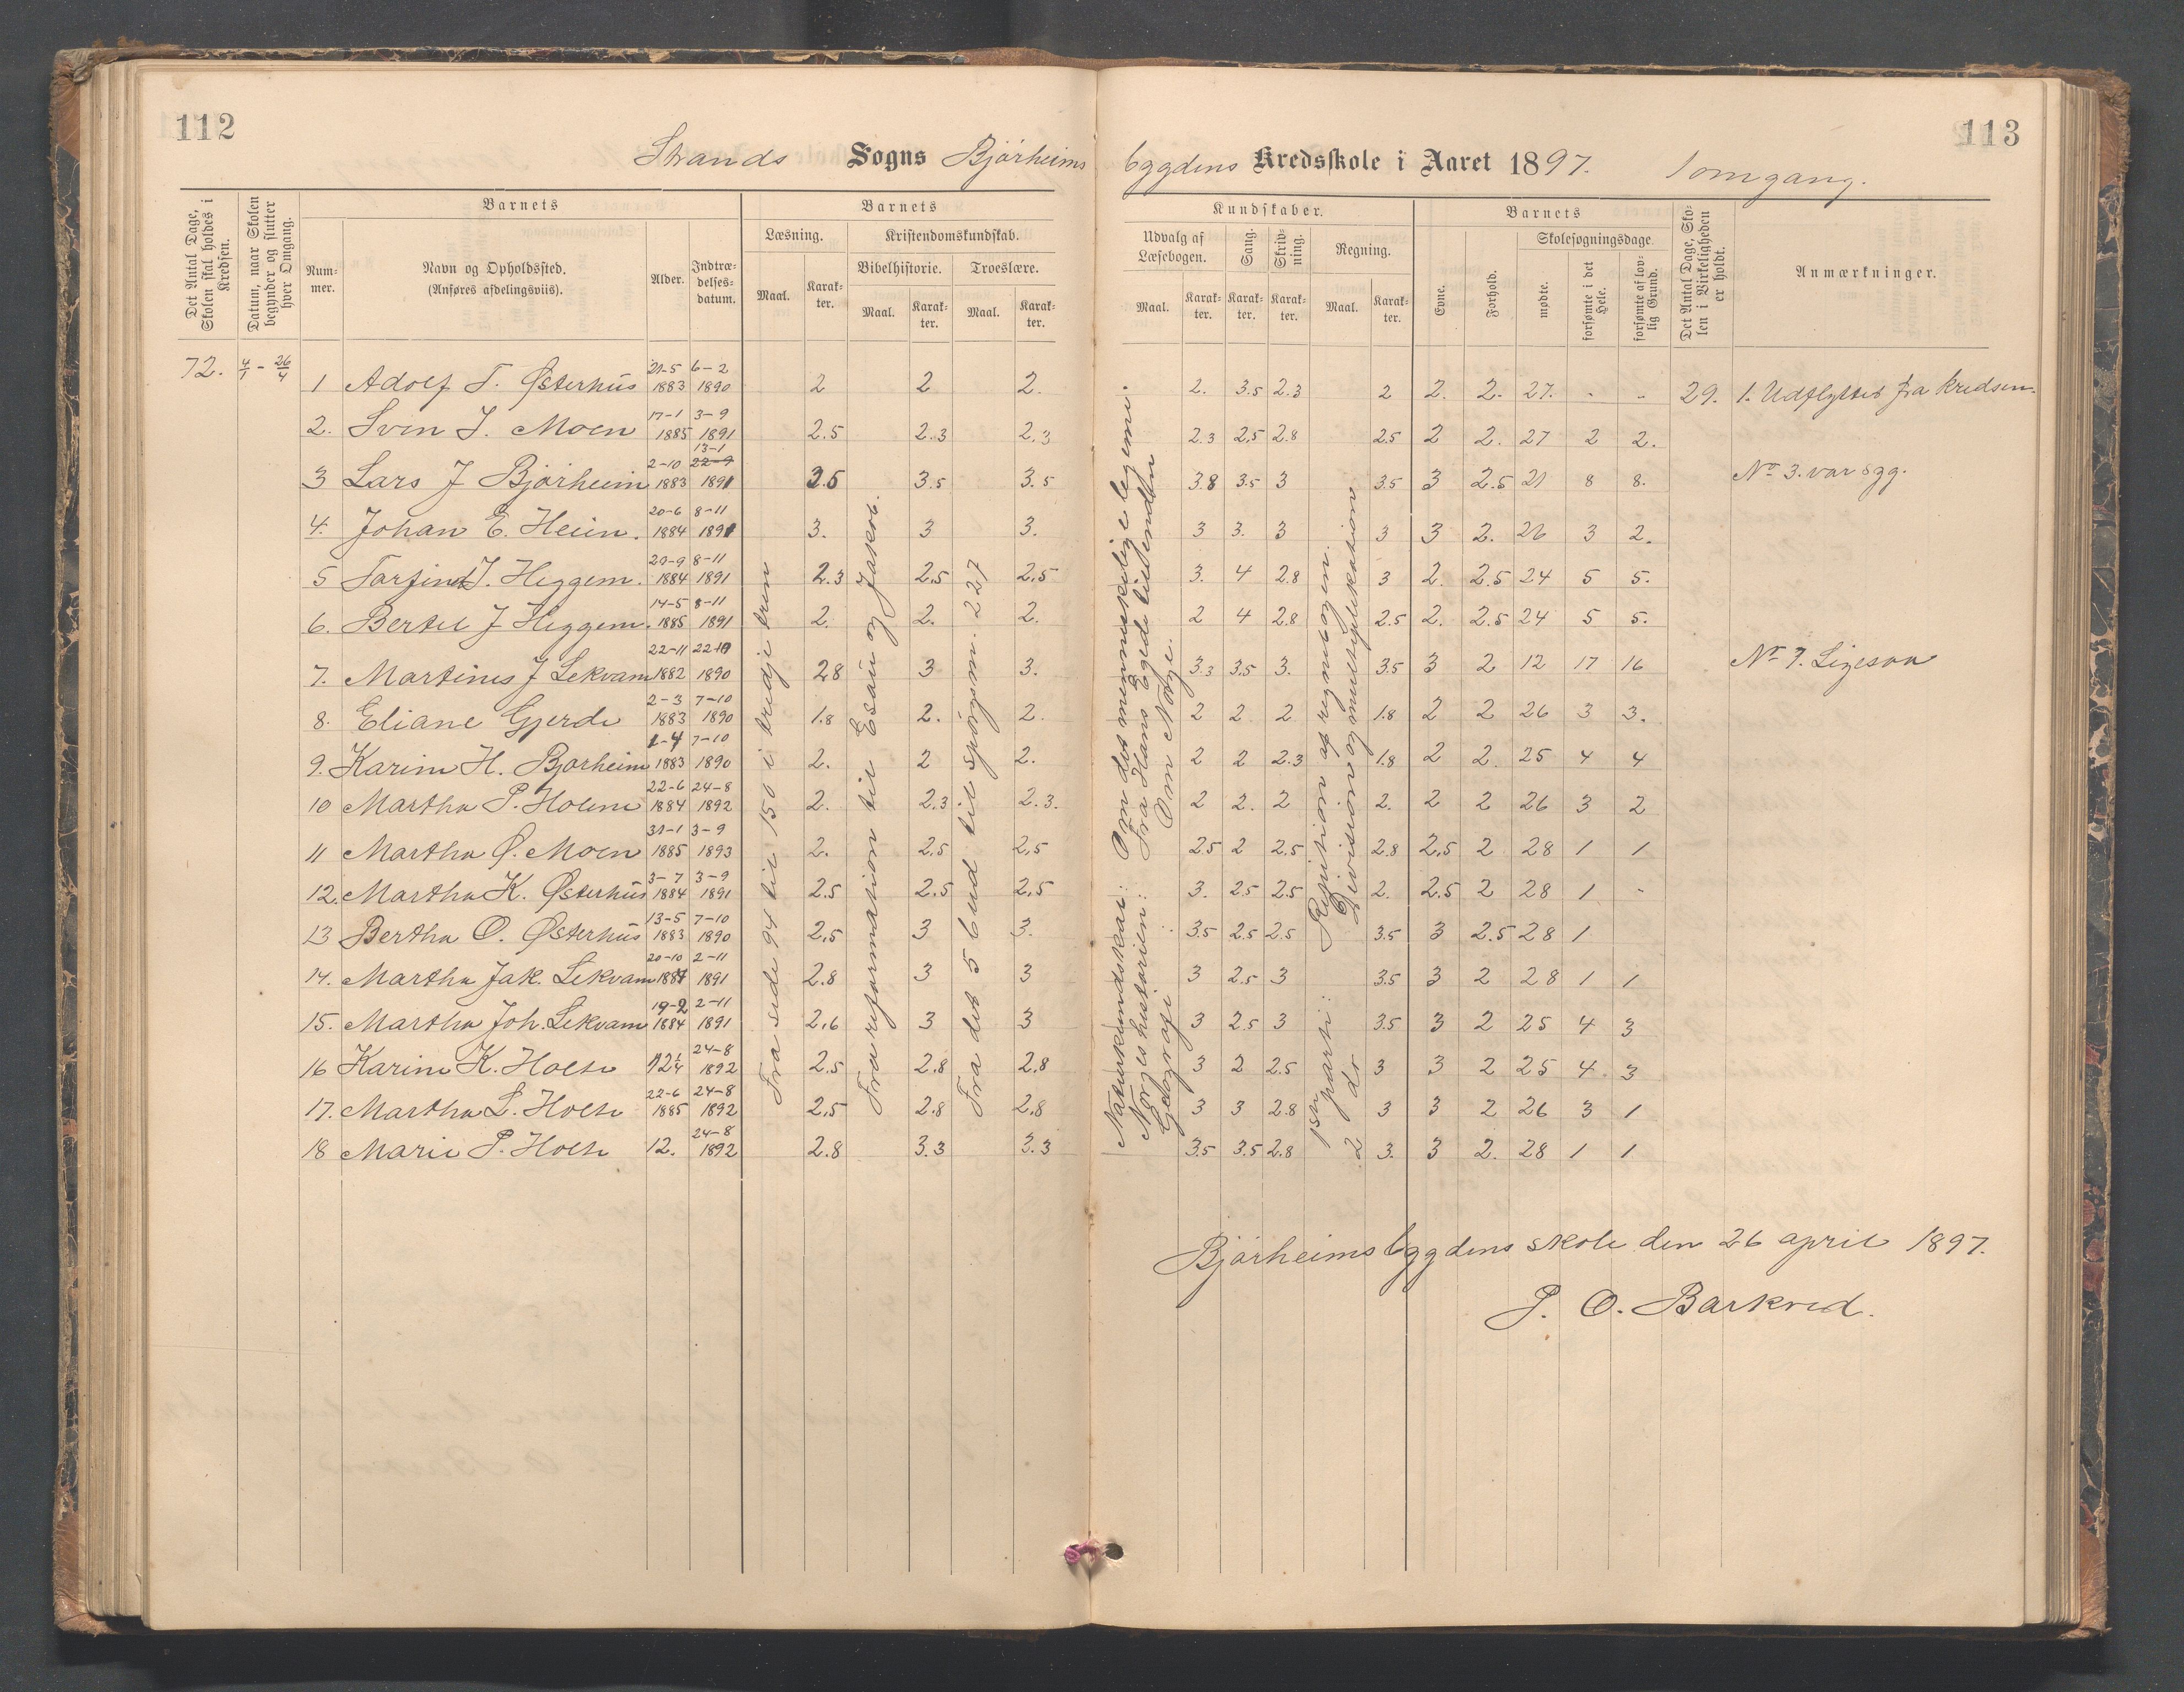 112
113
Strands Sogns Bjørheims
bygdens Kredsskole i Aaret 1897. 1 omgang.
Det Antal Dage, Skolen skal holdes i Kredsen.
Datum, naar Skolen begynder og slutter hver Omgang.
Barnets
Nummer.
Navn og Opholdssted.
(Anføres afdelingsviis).
Alder.
Indtrædelsesdatum.
Barnets
Læsning.
Maal. Karakter.
Kristendomskundskab.
Bibelhistorie. Troeslære.
Maal. Karakter. Maal. Karakter.
Kundskaber.
Udvalg af Læsebogen.
Maal. Karakter.
Sang. Karakter.
Skrivning. Karakter.
Regning.
Maal. Karakter.
Barnets
Evne. Forhold.
Skolesøgningsdage
mødte. forsømte i det Hele. forsømte af lovlig Grund.
Det Antal Dage, Skolen i Virkeligheden er holdt.
Anmærkninger.
72. 4/1 - 26/4
1 Adolf T. Østerhus 21-5 1883 6-2 1890 2 2 2. 2. 3.5 2.3 2 2. 2. 27. - - 29. 1. Udflyttet fra kredsen.
2. Sven J. Moen 17-1 1885 3-9 1891 2.5 2.3 2.3 2.3 2.5 2.8 2.5 2 2. 27 2 2.
3 Lars J Bjørheim 2-10 1883 13-1 22-9 1891 3.5 3.5 3.5 3.8 3.5 3 3.5 3 2.5 21 8 8. No 3. var syg.
4. Johan E. Heien. 20-6 1884 8-11 1891 3. 3 3. 3 3. 3 3 3 2. 26 3 2.
5 Torfind J. Heggem. 20-9 1884 8-11 1891 2.3 2.5 2.5 3. 4 2.8 3 2. 2.5 24 5 5.
6. Bertel J Heggem. 14-5 1885 8-11 1891 2. 2. 2. 2 4 2.8 2.5 2. 2.5 24 5 5.
7. Martines J Lekvam 22-11 1882 22-10 1890 2.8 3 3. 3.3 3.5 3. 3.5 3 2 12 17 16 No 7. Ligesaa
8. Eliane Gjerde 2-3 1883 7-10 1890 1.8 2. 2. 2 2 2 1.8 2 2 26 3 3.
9. Karine H. Bjørheim 1-4 1883 7-10 1890 2. 2 2. 2 2 2.3 1.8 2 2 25 4 4
10 Martha P. Holene 22-6 1884 24-8 1892 2. 2.3. 2.3. 2 2. 2 2. 2 2 26 3 2
11 Martha Ø. Moen 31-1 1885 3-9 1893 2. 2.5 2.5 2.5 2 2.5 2.8 2.5 2 28 1 1
12. Martha K. Østerhus 3-7 1884 3-9 1891 2.5 2.5 2.5 3. 2.5 2.5 2. 2.5 2 28 1 -
13 Bertha O. Østerhus 13-5 1883 7-10 1890 2.5 3 3. 3.5 2.5 2.5 3.5 3 2.5 28 1
14. Martha Jak. Lekvam 20-10 1884 2-11 1891 2.8 3 3 3 2.5 3 3.5 3 2 28 1 1
15. Martha Joh. Lekvam 19-2 1884 2-11 1891 2.6 3 3 3 2.5 3 3.5 3 2 25 4 3
16 Karine K. Holte 24-8 1892 2.5 2.8 2.8 3 2 2.5 3 3 2 25 4 3
17. Martha L. Holte 22-6 1885 24-8 1892 2.5 2.8 2.8 3 3 2.8 3 3 2 26 3 1
18 Marie P. Holte 12. 24-8 1892 2.8 3.3 3.3 3.5 3.5 2.8 3. 3 2. 28 1 1
Fra side 94 til 150 i tredje trin
Fra reformation til Esau og Jakob.
Fra det 5 bud til spørgsm. 227
Naturkundskab: Om det menneskelige legeme.
Norges historien: Fra Hans Egede til enden
Geografi Om Norge.
1ste parti: Repetition af regnebogen.
2 do Division og multiplikation
Bjørheimsbygdens skole den 26 april 1897.
P. O. Barkved.